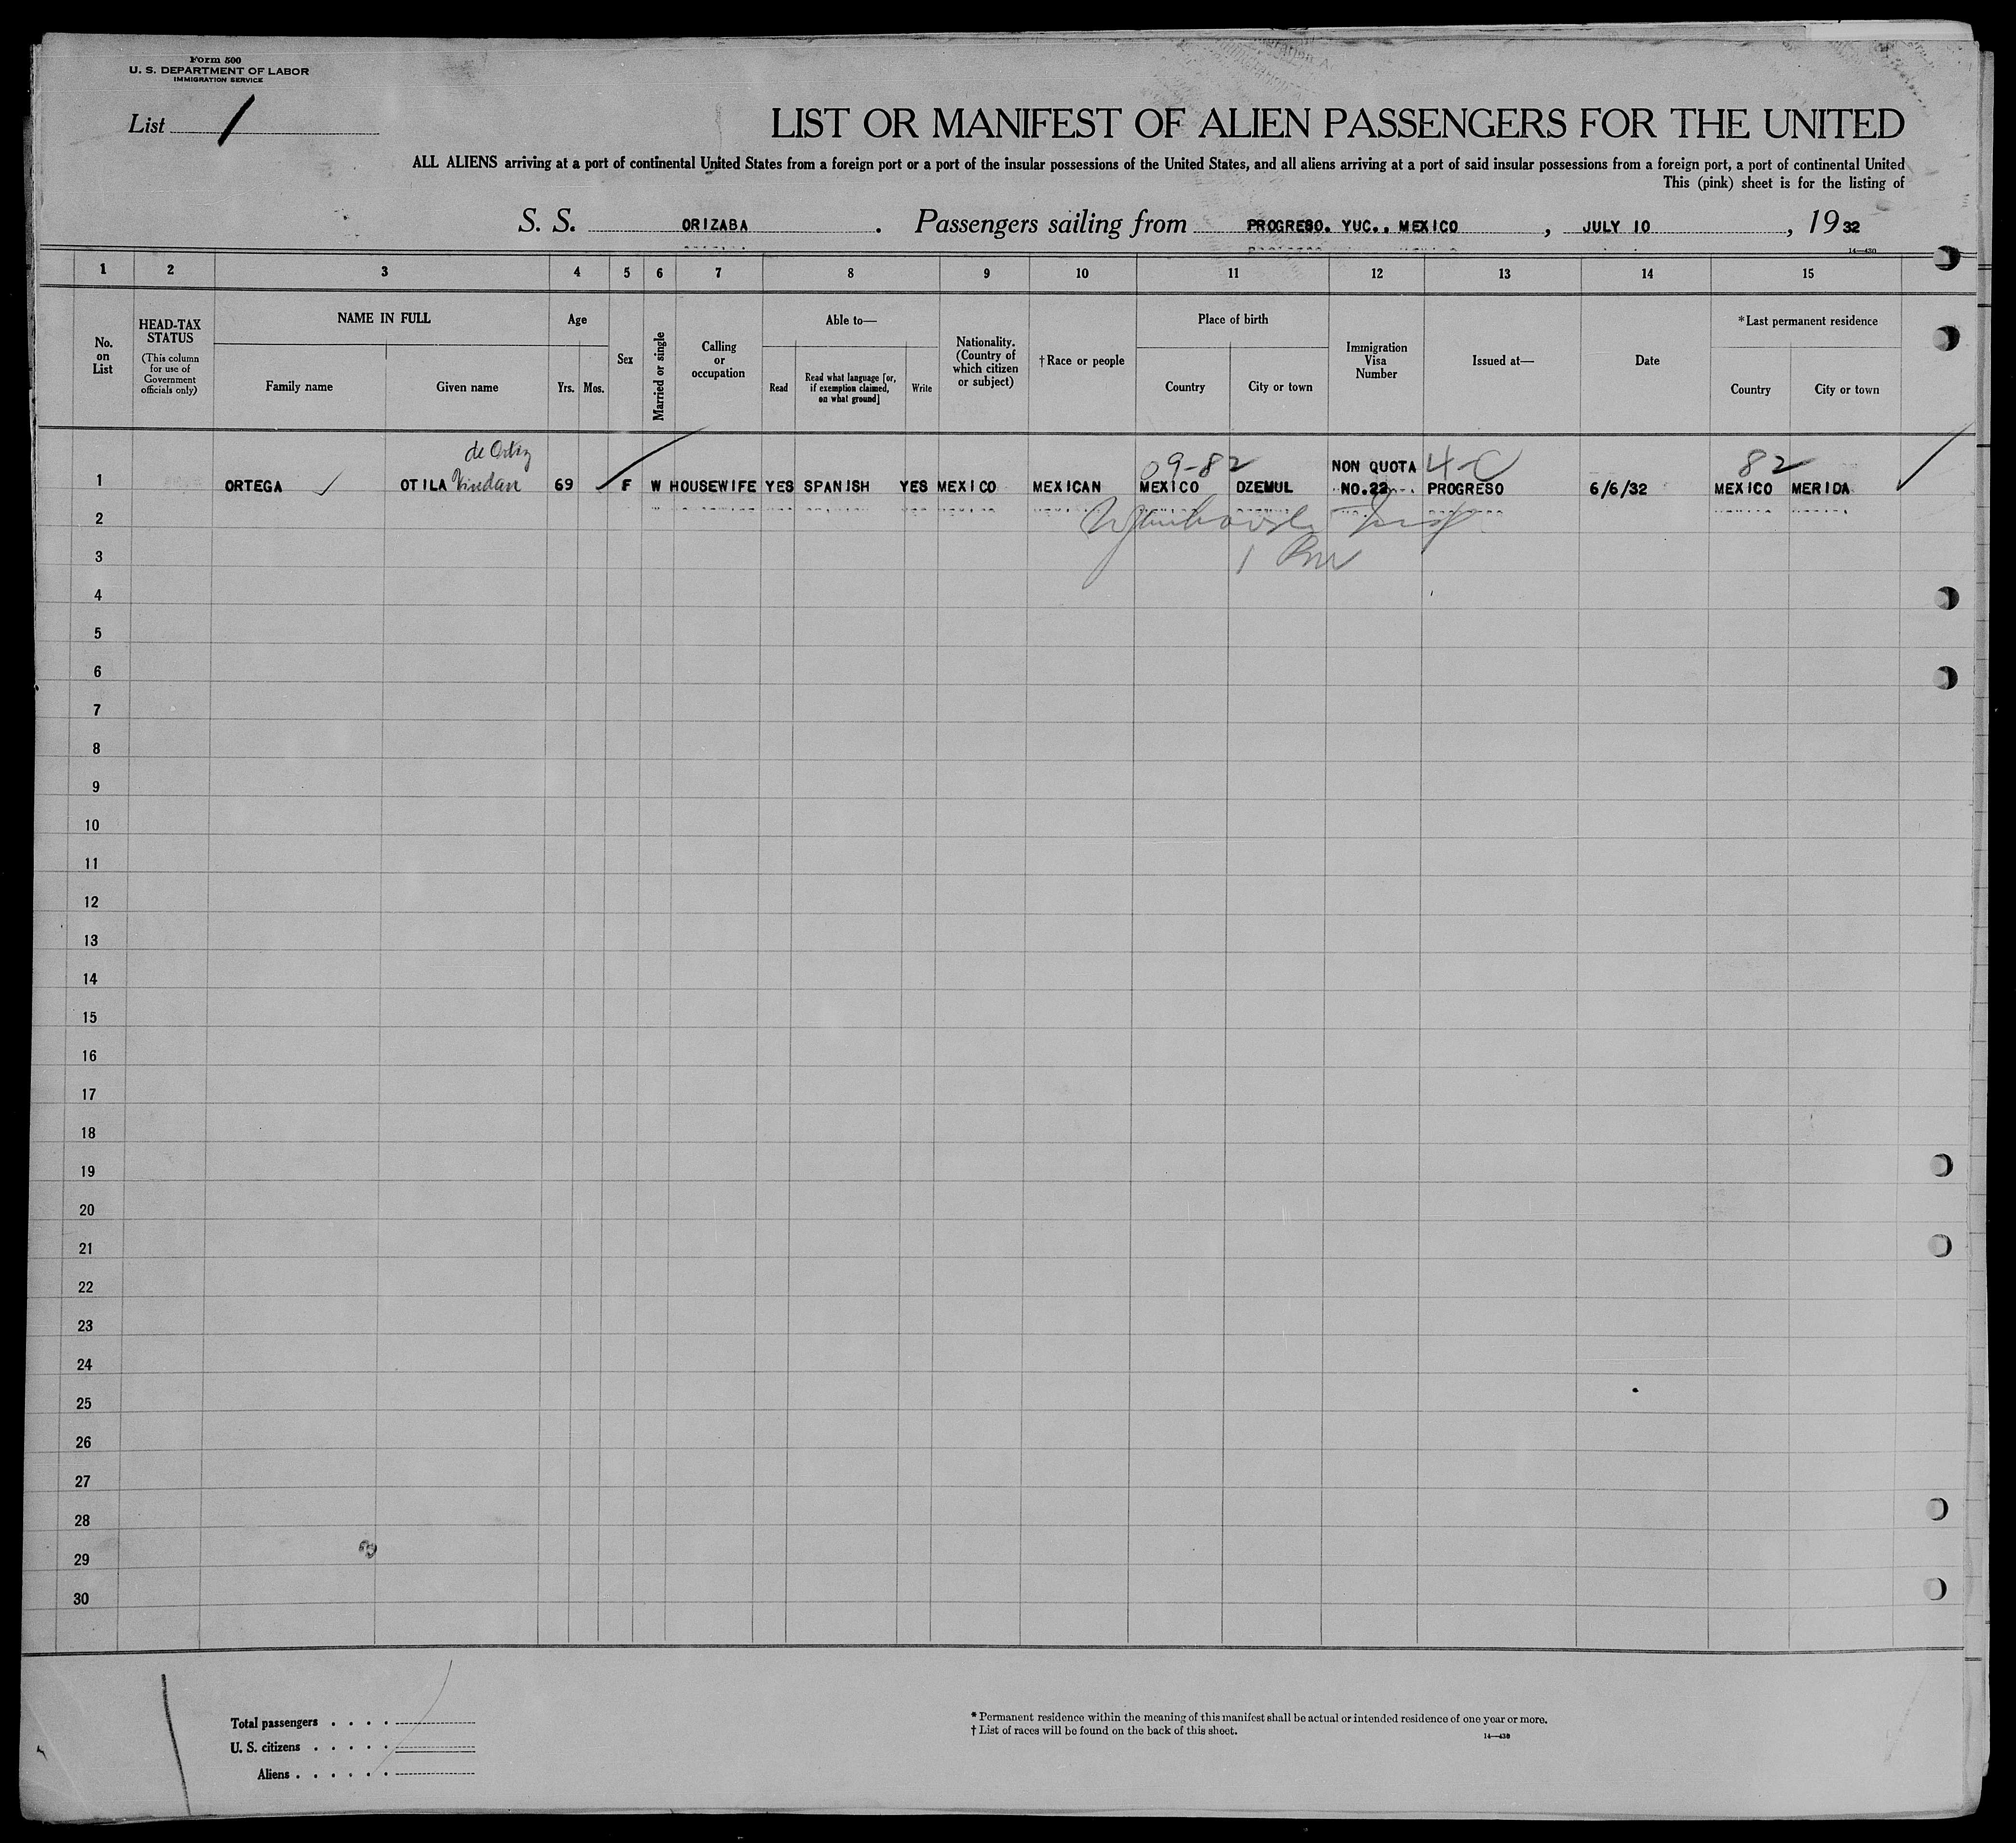 Form 500
U. S. DEPARTMENT OF LABOR
IMMIGRATION SERVICE
List 1
LIST OR MANIFEST OF ALIEN PASSENGERS FOR THE UNITED
ALL ALIENS arriving at a port of continental United States from a foreign port or a port of the insular possessions of the United States, and all aliens arriving at a port of said insular possessions from a foreign port, a port of continental United
This (pink) sheet is for the listing of
S. S. ORIZABA. Passengers sailing from PROGRESO. YUC., MEXICO, JULY 10, 1932
14—430
1 2 3 4 5 6 7 8 9 10 11 12 13 14 15
No. on List
HEAD-TAX STATUS
(This column for use of Government officials only)
NAME IN FULL
Family name
Given name
Age
Yrs. Mos.
Sex
Married or single
Calling or occupation
Able to—
Read
Read what language [or, if exemption claimed, on what ground]
Write
Nationality. (Country of which citizen or subject)
†Race or people
Place of birth
Country
City or town
Immigration Visa Number
Issued at—
Date
*Last permanent residence
Country
City or town
09-82 NON QUOTA 4-C 82
1 ORTEGA OTILA 69 F W HOUSEWIFE YES SPANISH YES MEXICO MEXICAN MEXICO DZEMUL NO.22 PROGRESO 6/6/32 MEXICO MERIDA
2
3
4
5
6
7
8
9
10
11
12
13
14
15
16
17
18
19
20
21
22
23
24
25
26
27
28
29
30
Total passengers . . . .
U. S. citizens . . . . .
Aliens . . . . . .
* Permanent residence within the meaning of this manifest shall be actual or intended residence of one year or more.
† List of races will be found on the back of this sheet.
14—430